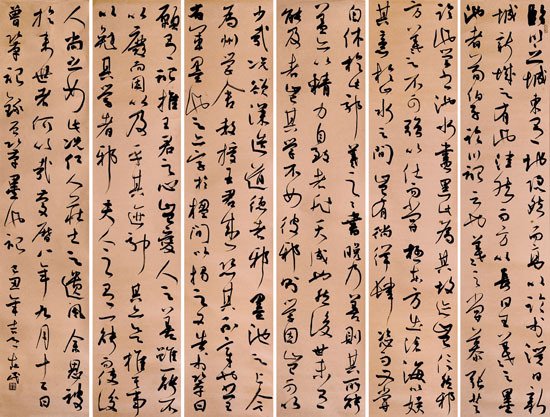 臨川之城東有地隱然而高以臨於溪曰新
城新城之上有池洼然而方以長曰王羲之之墨
池者荀伯子臨川記云也羲之嘗慕張芝
臨池學書池水盡黑此為其故迹豈信然邪
方羲之之不可強以仕而嘗極東方出滄海以娛
其意於山水之間豈有徜徉肆恣而又嘗
自休於此邪羲之之書晚乃善則其所能
蓋亦以精力自致者非天成也然後世未有
能及者豈其學不如彼邪則學固豈可以
少哉況欲深造道德者邪墨池之上今
為州學舍教授王君盛恐其不章也書晉王
右軍墨池之六字於楹間以揭之又告於鞏曰
願有記推王君之心豈愛人之善雖一能不
以廢而因以及乎其迹邪其亦欲推其事
以勉其學者邪夫人之有一能而使後
人尚之如此況仁人莊士之遺風餘思被
於來世者何如哉慶曆八年九月十二日
曾鞏記錄曾鞏墨池記己丑年